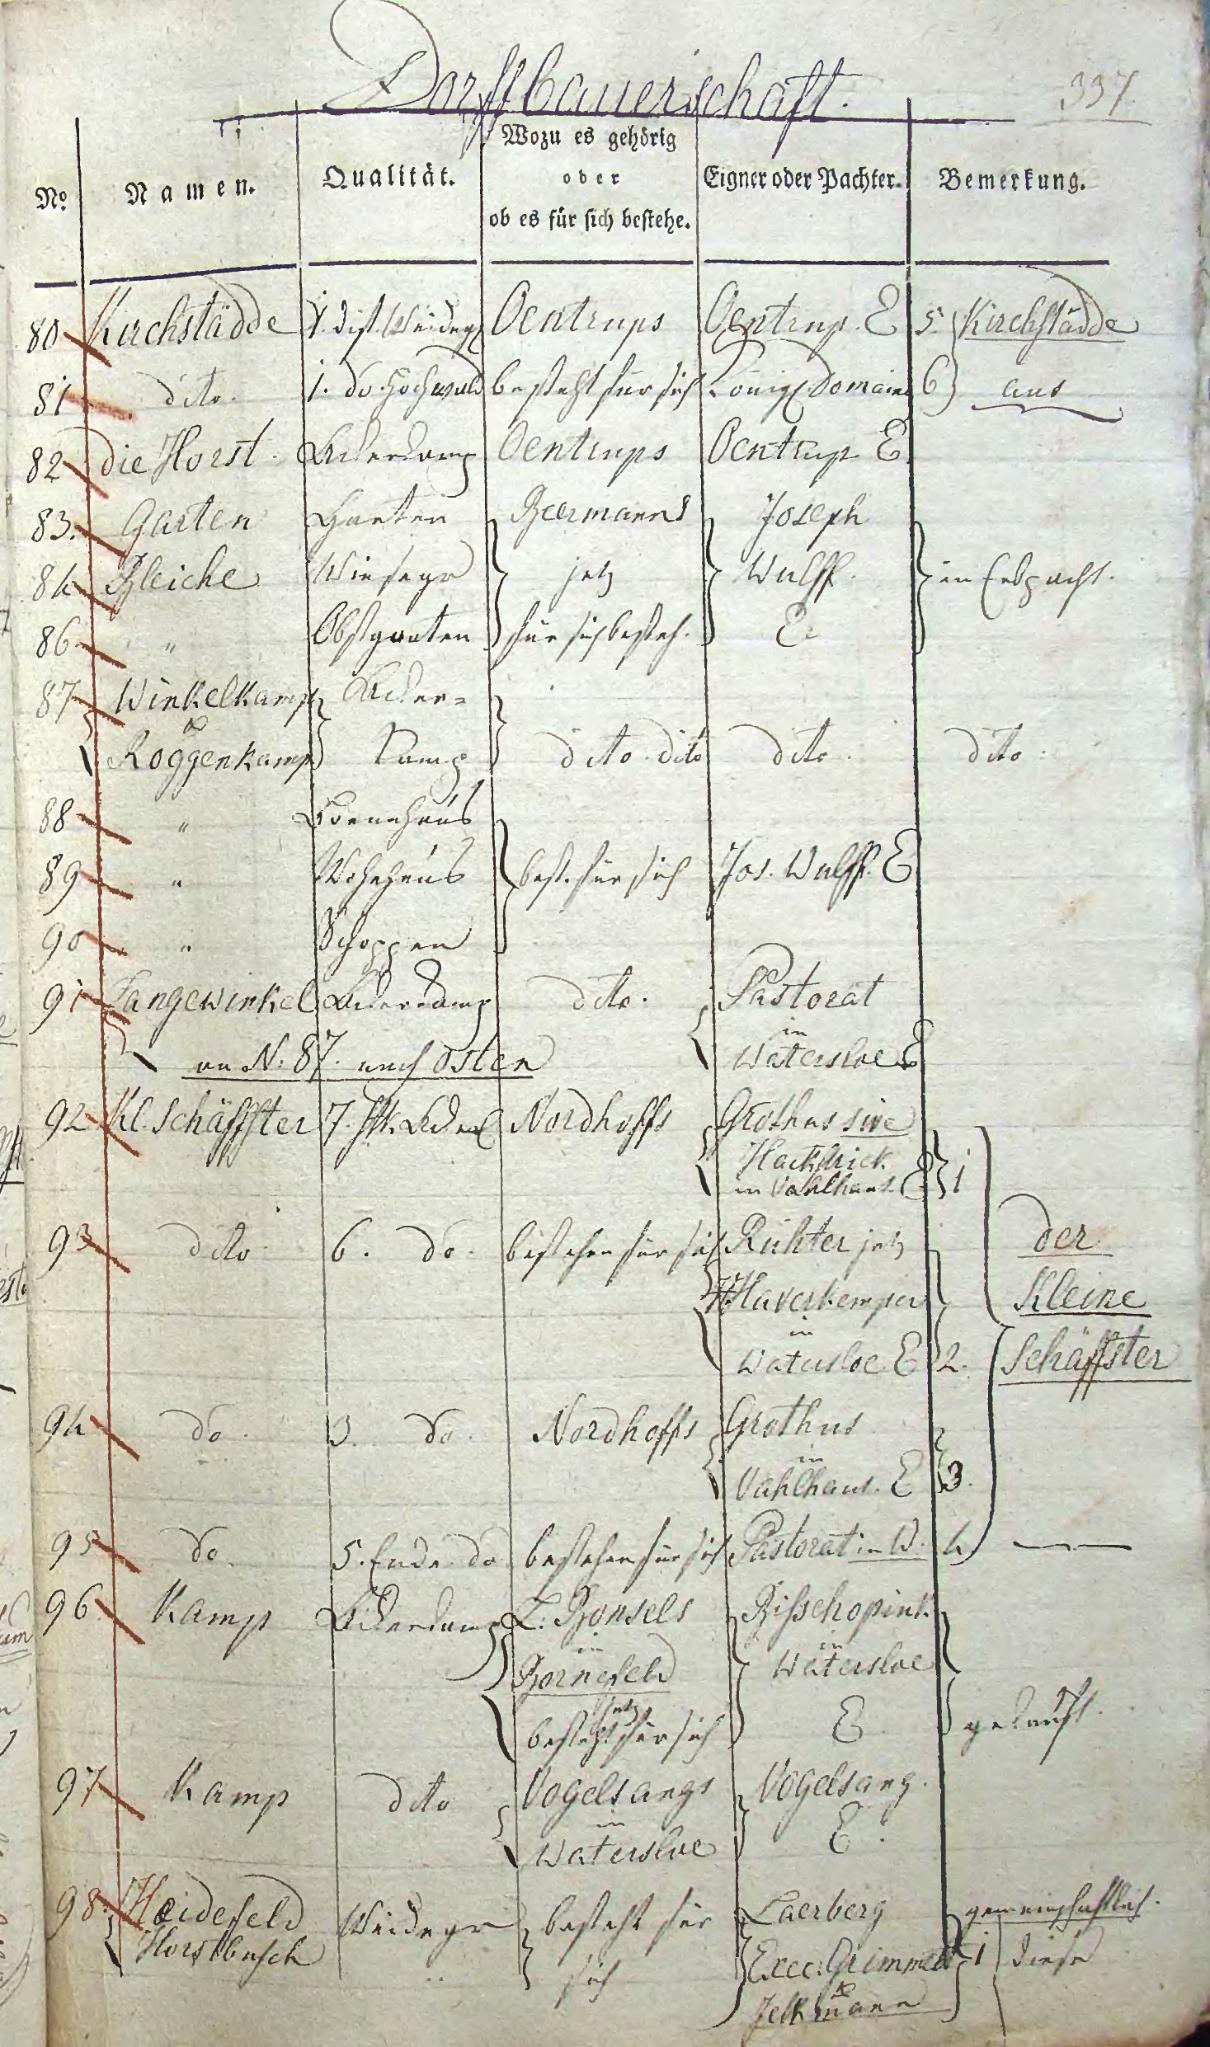 Dorffbauerschaft.
337.
No. Namen. Qualität. Wozu es gehörig oder ob es für sich bestehe. Eigner oder Pachter. Bemerkung.
80 Kirchstädde 1. dist. Weidegr Oentrups Oentrup. E 5. Kirchstädde
81 dito. 1. do. Hochwald besteht für sich Königl. Domaine 6 aus
82 die Horst. Ackerkamp Oentrups Oentrup E.
83. Garten Garten Beermanns Joseph
84 Bleiche Wiesegr jetz Wulff. in Erbpacht.
86 " Obstgarten für sich besteh. E.
87 Winkelkamp Acker=
& Roggenkamp Kamp dito dito dito. dito.
88 "
89 " Wohnhaus best. für sich Jos. Wulff. E
90 " Schoppen
91 Langewinkel Ackerkamp dito. Pastorat
in
an N: 87. nach Osten Watersloe E
92 Kl. Schäffster 7. Stk. Acker Nordhoffs Grothus sive
Hackfrick
in Vahlhaus. E 1
93 dito 6. do. bestehen für sich Richter jetz der
Haverkemper Kleine
in
Watersloe E 2. Schäffster
94 do. 3. do. Nordhoffs Grothus
in
Vahlhaus. E 3.
95 do. 5. Ende do bestehen für sich Pastorat in W. 4
96 Kamp Ackerkamp Z. Bonsels Bisschopink
in in
Bornefeld Watersloe
jetz
besteht für sich E gekauft.
97 Kamp dito Vogelsangs Vogelsang.
in
Watersloe E.
98. Heidefeld Weidegr besteht für Laerberg gemeinschaftlich.
Horstbusch sich Exec: Grimmelt 1 diese
&
Jelkmann